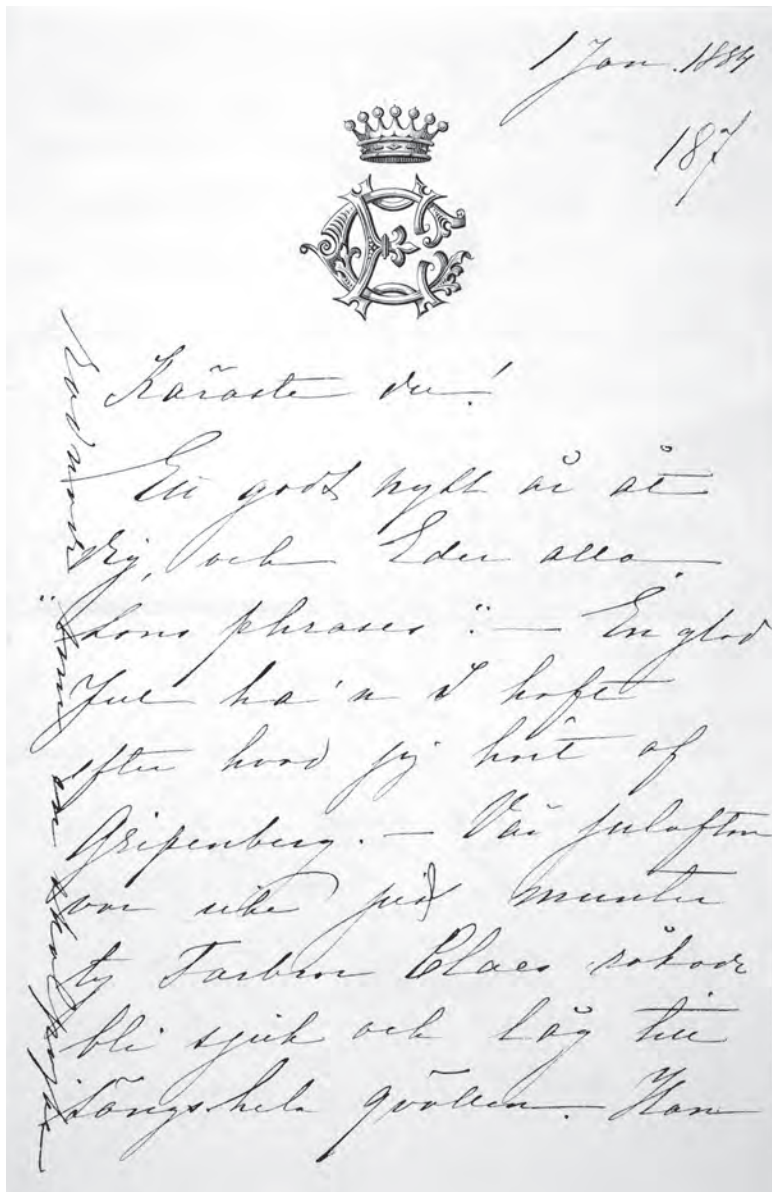 1 Jan. 1884
187
Käraste du!
Ett godt nytt år åt
dig, och Eder alla
"Sans phrases". — En glad
Jul ha'n I haft
efter hvad jag hört af
Gripenberg. — Vår julafton
var icke just munter
ty Farbror Claes råkade
bli sjuk och låg till
sängs hela qvällen. Han